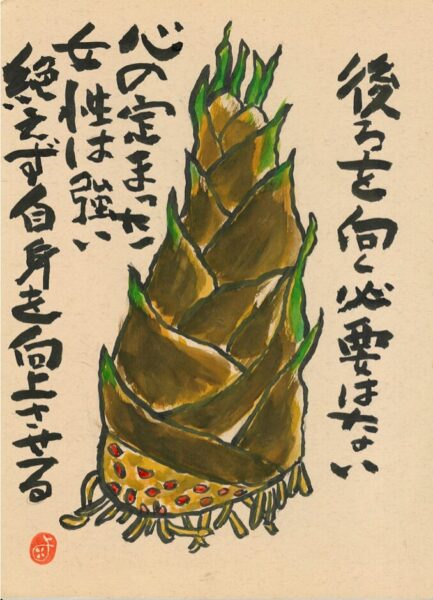 後ろを向く必要はない
心の定まった
女性は強い
絶えず自身を向上させる